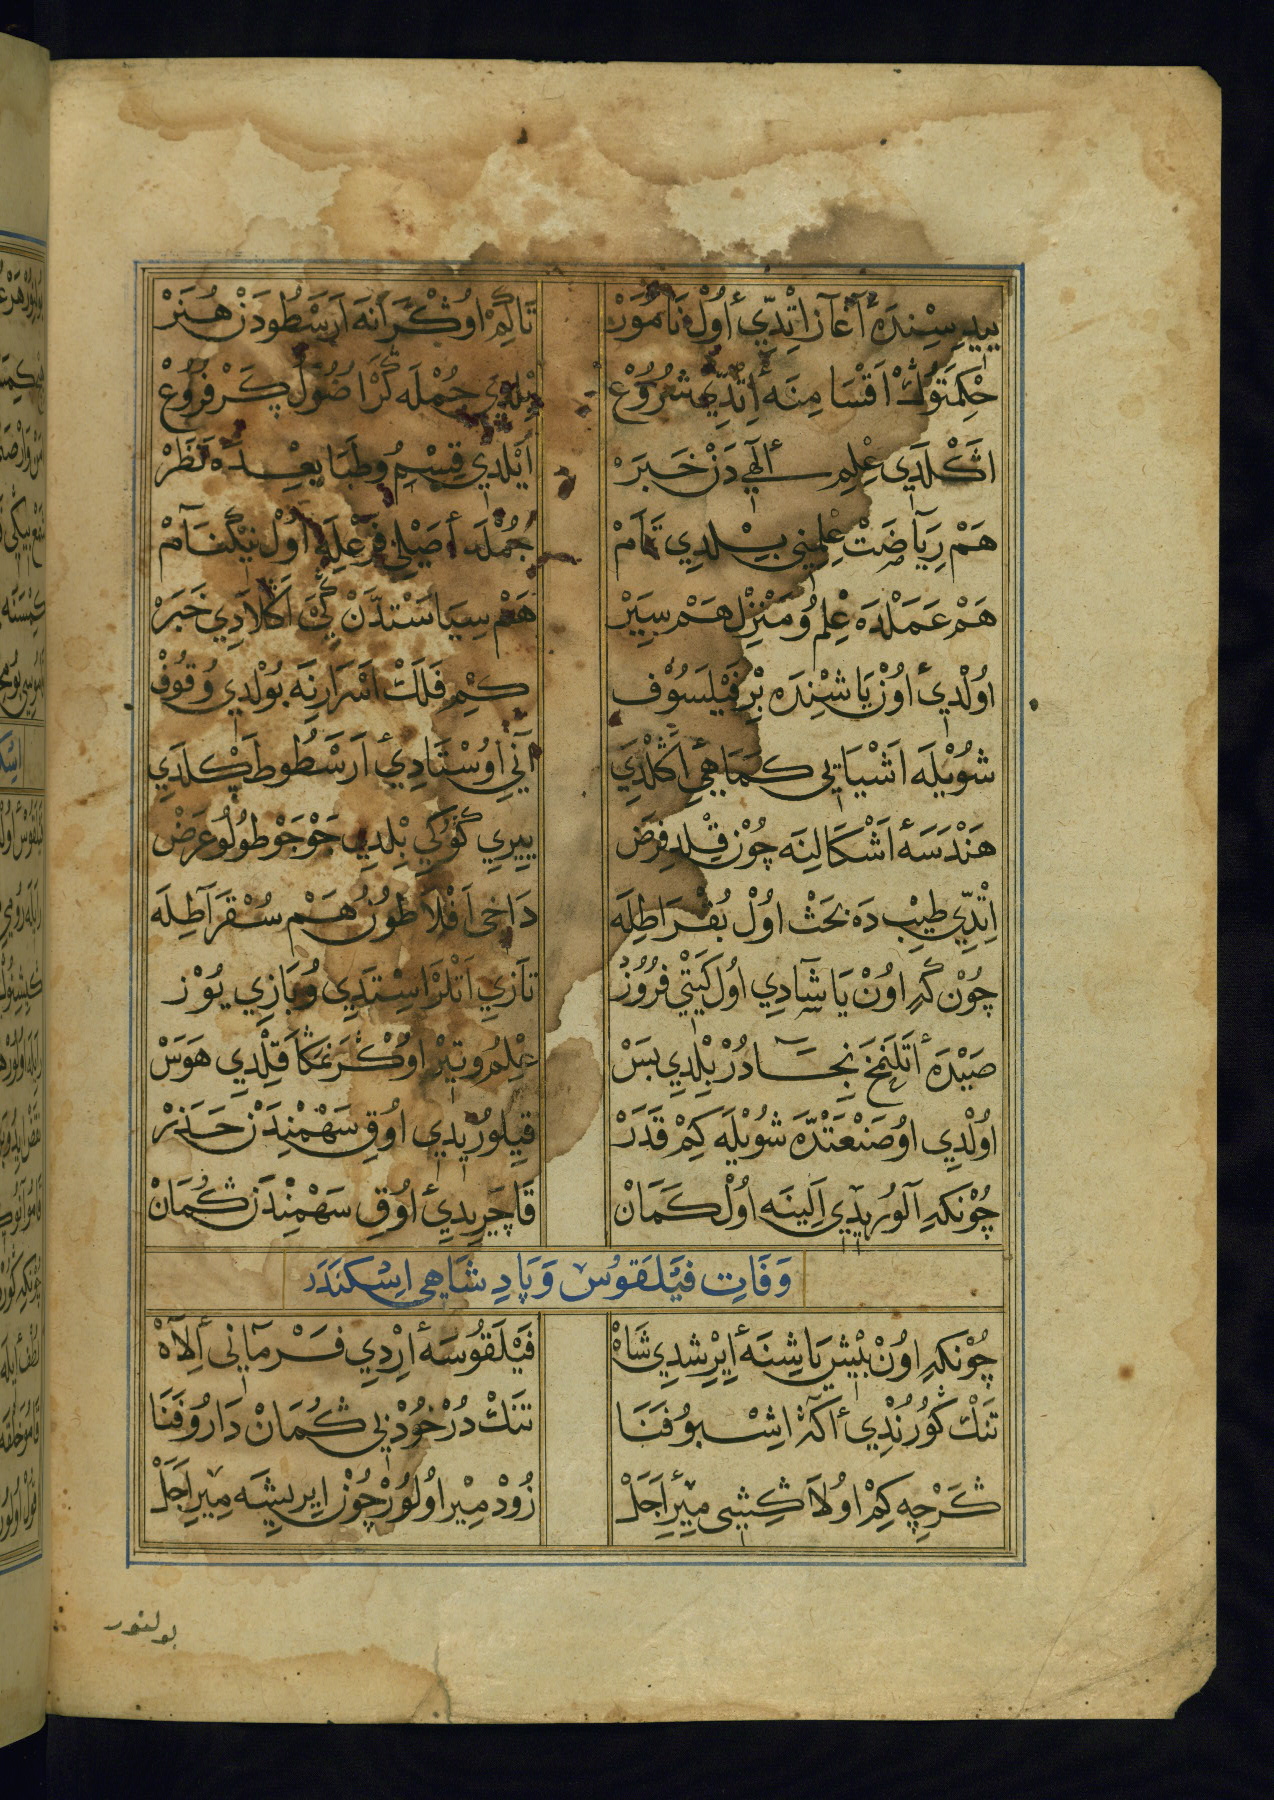 ییدِسِنْدَه آغَاز اِتْدِّي اُولْ نَامْوَرْ تَاكِمْ اوُگْرَانَه اَرَسْطُودَنْ هُنَرْ
حِكْمَتُوڭْ اَقْسَامِنَه اِتْدِّي شُرُوعْ بِلْدِي جُمْلَه گَرْ اُصُولْ گَرْ فُرُوعْ
اَڭْلَدِي عِلْمِ الٓهِي دَنْ خَبَرْ اَيْلَدِي قِسْمِ وطَبَايِعْدَه نَظَرْ
هَمْ رِيَاضَتْ عِلْمِنِي بِيلْدِي تَمَامْ جُمْلَه اَصْلِي فَرْعِلَه اُولْ نِيكْنَامْ
هَمْ عَمَلْدَه عِلْمُ ومَنْزِلْ هَمْ سِيَرْ هَمْ سِيَاسَتْدَنْ اَڭْلَادِي خَبَرْ
اوُلْدِي اوُنْ يَاشِنْدَه بِرْ فَيْلَسُوفْ كِمْ فَلَكْ اَسْرَارِنَه بُولْدِي وُقُوفْ
شُويْلَه اَشْيَايِي كَمَاهِي اَڭْلَدِي اَنِي اوُسْتَادِي اَرَسْطُو طَڭْلَدِي
هَنْدَسَه اَشْكَالِنَه چُونْ قِلْدِ فِرَضْ يِيرِي گُوكِي بِلْدِي جَوْجَوْ طُولُو عَرَضْ
اِتْدِّي طِبّ دَه بَحَثْ اوُلْ بُقْرَاطِلَه دَاخِي اَفْلَاطُونُ هَمْ سُقْرَاطِلَه
چُونْ گَهِ اوُنْ يَاشَادِي اوُلْ گِيتِي فُرُوزْ تَازِي اَتْلَرْ اِسْتَدِي وُ بَازِي يُوزْ
صَيْدَه اَتْلَنْمَخْ نِجَادُرْ بِلْدِي بَسْ عِلْمِ وتِيرْ اوُگْرَنْمَگَا قِلْدِي هَوَسْ
اوُلْدِي اوُصَنْعَتْدَه شُويْلَه كِمْ قَدَرْ قِيلُورْيِدِي اوُقِ سَهْمِنْدَنْ حَذَرْ
چُونْكَهِ آلُورْيِدِي اَلِينَه اوُلْ كَمَانْ قَاچَرِيدِي اوُقِ سَهْمِنْدَنْ گُمَانْ
وَفَاتِ فَيْلَقُوسْ وَپَادِشَاهِي اِسْكَنْدَر
چُونْكَهِ اوُنْ بِيشْ يَاشِنَه اِيرِشْدِي شَاهْ فَيْلَقُوسَه اِرْدِي فَرْمَانِي اِلَاهْ
تَنَكْ گُورُنْدِي اَكَا اِشْبُو فَنَا تَنَكْ دُرْ خُودْ بِي گُمَانْ دَارُ وفَنَا
گَرْچِه كِمْ اوُلَا كِشِي مِيرِ اَجَلْ زُودْ مِيرْ اوُلُورْ چُونْ اِيرِيشَه مِيرِ اَجَلْ
بولنور